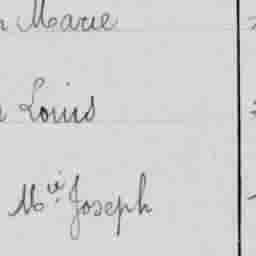 Marie
Louis
Mie Joseph